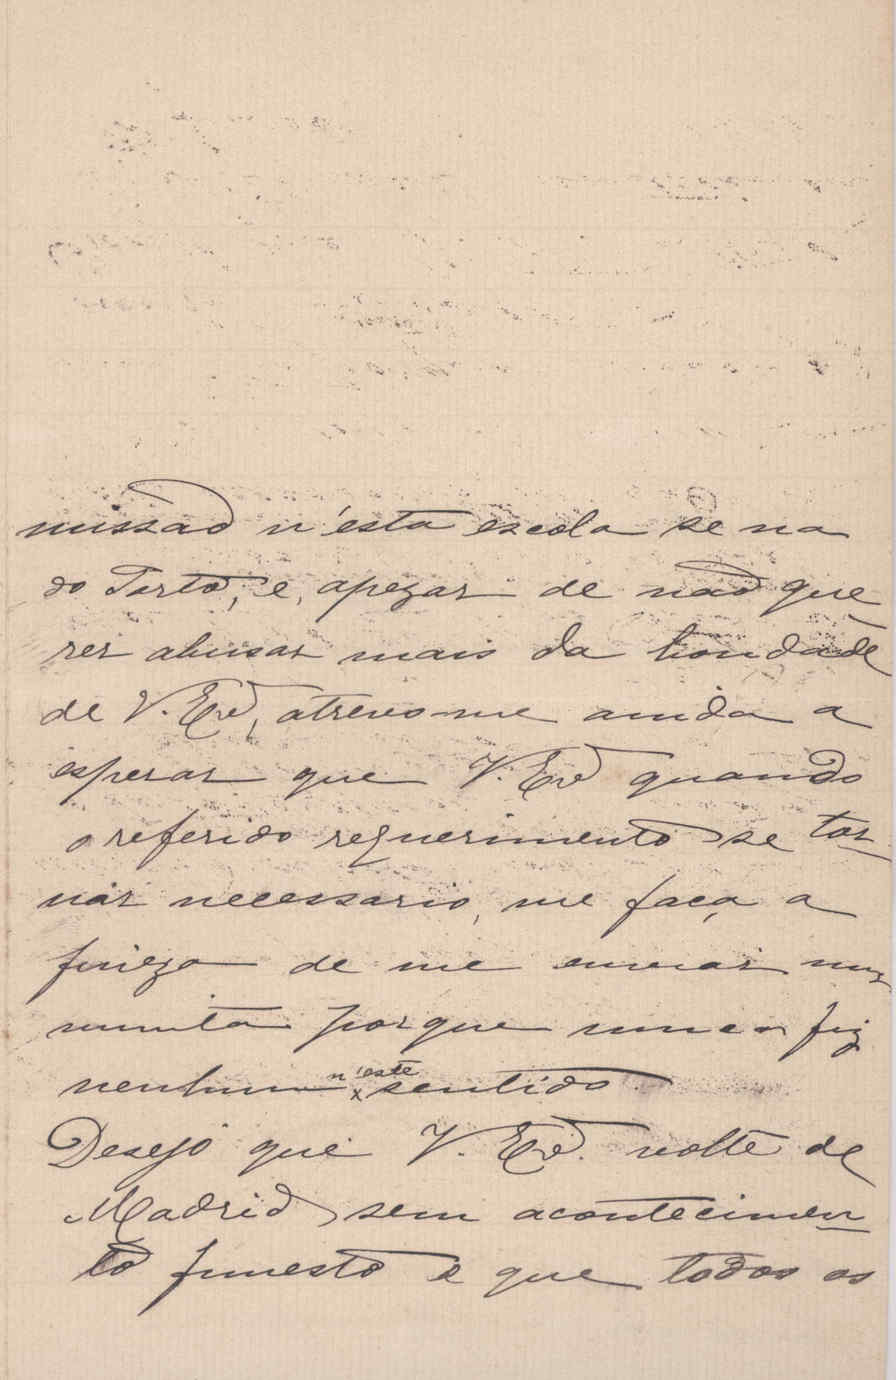 missaõ n'esta escola se na
do Porto, e, apezar de naõ que
rer abusar mais da bondade
de V. Ex.ª, atrevo-me ainda a
esperar que V. Ex.ª quando
o referido requerimento se tor-
nar necessario, me faça a
fineza de me enviar
minuta porque nunca fiz
nenhum n'este sentido
Desejo que V. Ex.ª volte de
Madrid sem acontecimen-
to funesto e que todos os